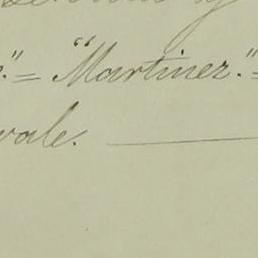 ." = "Martinez." =
vale.